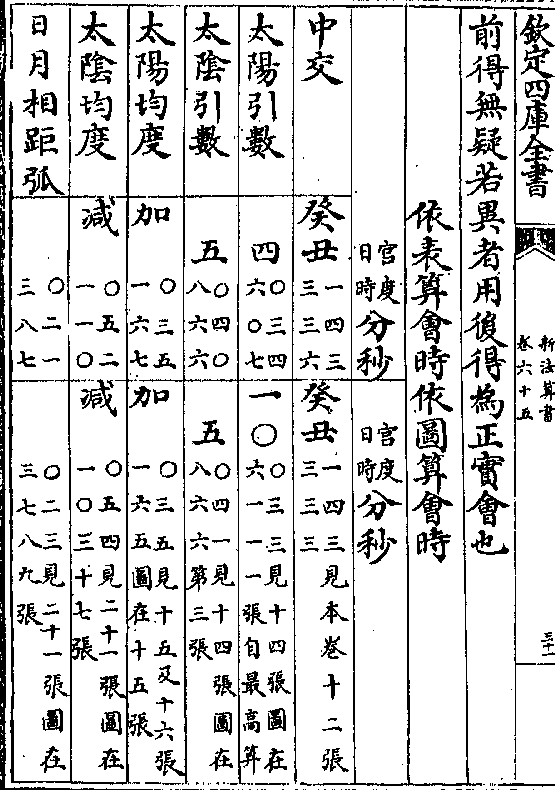 欽定四庫全書
新法算書
卷六十五
三十一
前得無疑若異者用後得為正實會也
依表算會時依圖算會時
宮度
日時
分秒
宮度
日時
分秒
中交
癸丑
一四三
三三六
癸丑
一四三見本卷十二張
三三三
太陽引數
四
〇三四
六〇七
一〇
〇三三見十四張圖在
六一一一張自最高算
太陰引數
五
〇四〇
八六六
五
〇四一見十四張圖在
八六六第三張
太陽均度
加
〇三五
一六七
加
〇三五見十五及十六張
一六五圖在十五張
太陰均度
減
〇五二
一一〇
減
〇五四見二十一張圖在
一〇三十七張
日月相距弧
〇二一
三八七
〇二三見二十一張圖在
三七八九張